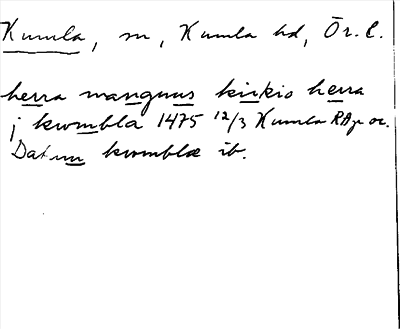 Kumla, sn, Kumla hd, Ör. l.
herra mangnus kirkio herra
j kwmbla 1475 12/3 Kumla RAp or.
Datum kwmblæ ib.